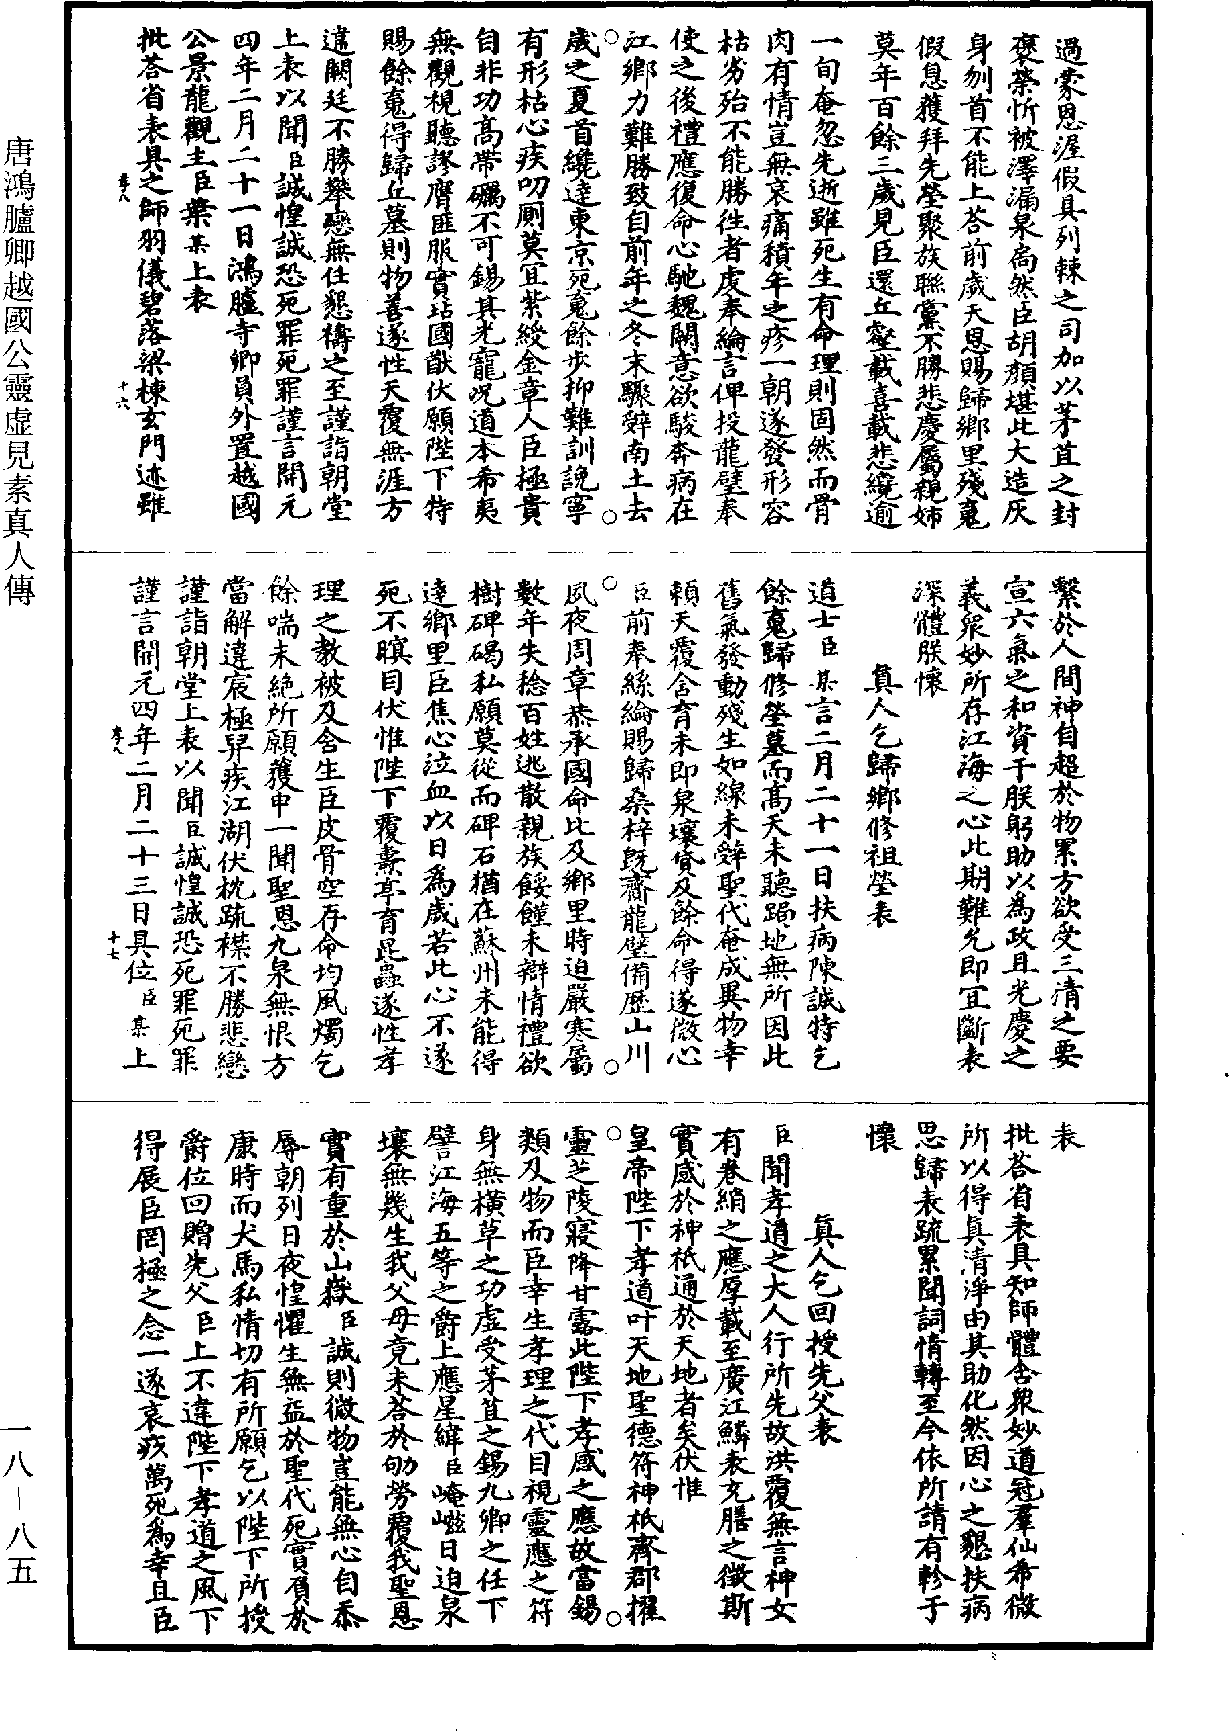 過蒙恩渥假具列棘之司加以茅苴之封
褒榮忻被澤漏泉扃然臣胡顏堪此大造灰
身刎首不能上荅前歲天恩賜歸鄉里殘䰟
假息獲拜先塋聚族聯黨不勝悲慶屬親姊
莫年百餘三歲見臣還丘壑載喜載悲纔逾
一旬奄忽先逝雖死生有命理則固然而骨
肉有情豈無哀痛積年之疹一朝遂發形容
枯劣殆不能勝徃者虔奉綸言俾投龍璧奉
使之後禮應復命心馳魏闕意欲駿奔病在
江鄉力難勝致自前年之冬末驟辝南土去
歲之夏首纔達東京死䰟餘步抑難訓說寧
有形枯心疾叨厠莫宜紫綬金章人臣極貴
自非功高帶礪不可錫其光寵况道本希夷
無觀視聽謬膺匪服實玷國猷伏願陛下特
賜餘䰟得歸丘墓則物善遂性天覆無涯方
違闕廷不勝攀戀無任懇禱之至謹詣朝堂
上表以聞臣誠惶誠恐死罪死罪謹言開元
四年二月二十一日鴻臚寺卿員外置越國
公景龍觀主臣葉某上表
批荅省表具之師羽儀碧落梁棟玄門迹雖
孝八
十六
繫於人間神自超於物累方欲受三清之要
宣六氣之和資于朕躬助以為政且光慶之
義衆妙所存江海之心此期難允即宜斷表
深體朕懷
真人乞歸鄉修祖塋表
道士臣某言二月二十一日扶病陳誠特乞
餘䰟歸修塋墓而高天未聽跼地無所因此
舊氣發動殘生如線未辝聖代奄成異物幸
賴天覆含育未即泉壤貸及餘命得遂微心
臣前奉絲綸賜歸桑梓旣齎龍璧備歷山川
夙夜周章恭承國命比及鄉里時迫嚴寒屬
數年失稔百姓逃散親族餒饉未辯情禮欲
樹碑碣私願莫從而碑石猶在蘇州未能得
達鄉里臣焦心泣血以日為歲若此心不遂
死不瞑目伏惟陛下覆燾亭育昆蟲遂性孝
理之教被及含生臣皮骨空存命均風燭乞
餘喘未絶所願獲申一聞聖恩九泉無恨方
當解違宸極舁疾江湖伏枕疏襟不勝悲戀
謹詣朝堂上表以聞臣誠惶誠恐死罪死罪
謹言開元四年二月二十三日具位臣某上
孝八
十七
表
批荅省表具知師體含衆妙道冠羣仙希微
所以得真清淨由其助化然因心之懇扶病
思歸表疏累聞詞情轉至今依所請有軫于
懷
真人乞回授先父表
臣聞孝道之大人行所先故洪覆無言神女
有卷綃之應厚載至廣江鱗表充膳之徵斯
實感於神祇通於天地者矣伏惟
皇帝陛下孝道叶天地聖德符神祇齋郡擢
靈芝陵寢降甘露此陛下孝感之應故當錫
類及物而臣幸生孝理之代目視靈應之符
身無橫草之功虛受茅苴之錫九卿之任下
譬江海五等之爵上應星緯臣崦嵫日迫泉
壤無幾生我父母竟未荅於劬勞覆我聖恩
實有重於山嶽臣誠則微物豈能無心自忝
辱朝列日夜惶懼生無益於聖代死實負於
康時而犬馬私情切有所願乞以陛下所授
爵位回贈先父臣上不違陛下孝道之風下
得展臣罔極之念一遂哀疚萬死為幸且臣
唐鴻臚卿越國公靈虛見素真人傳
一八－八五